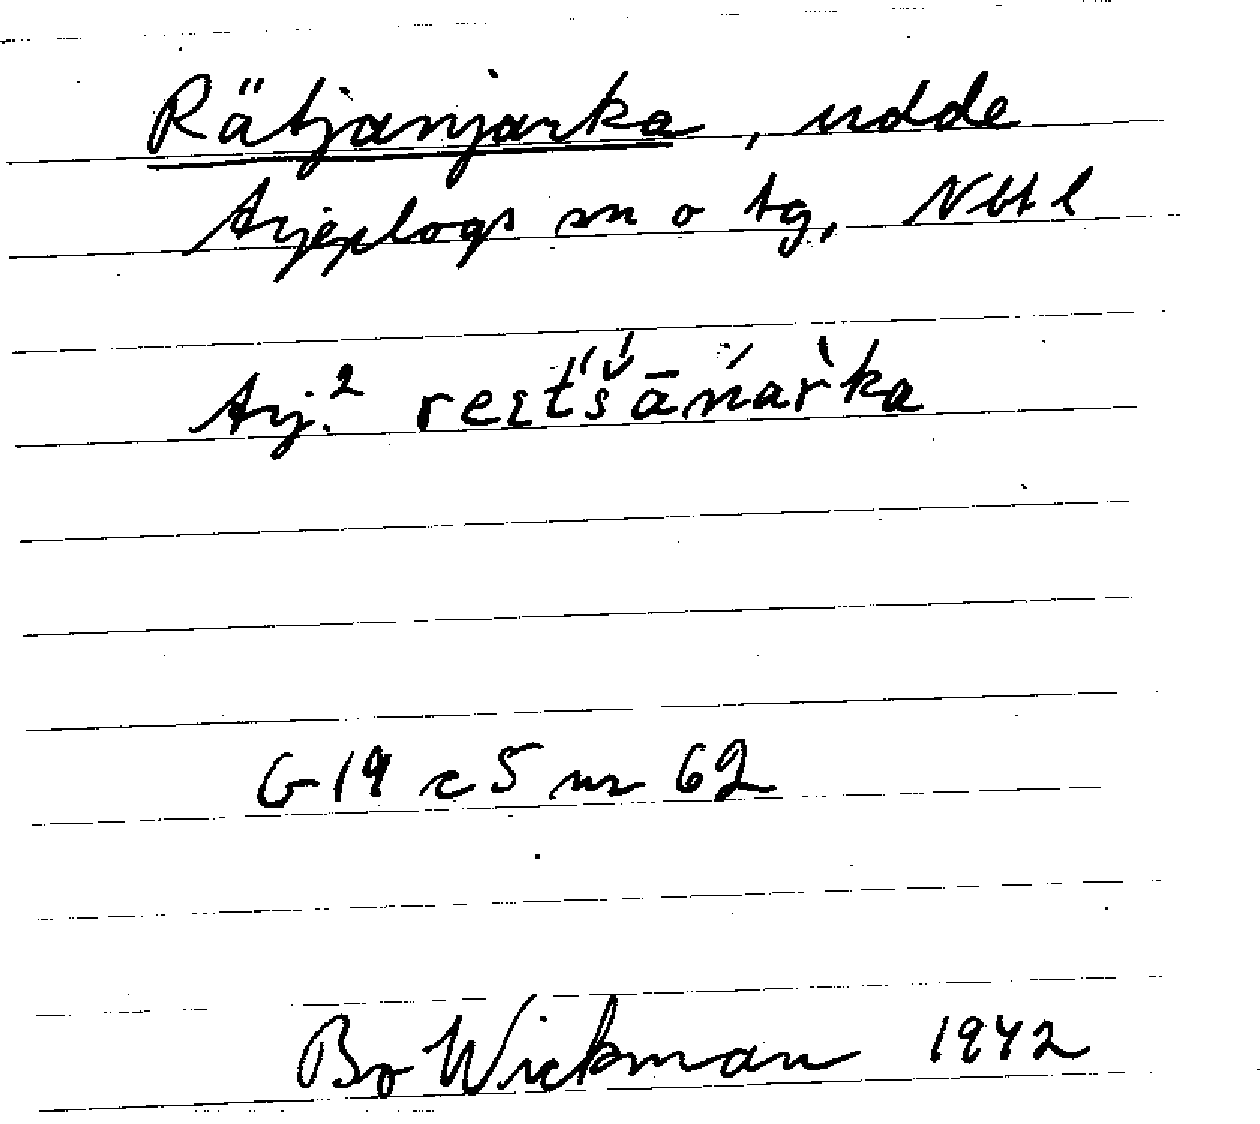 Rätjanjarka, udde
Arjeplogs sn o tg, Nbt l
Arj.²
G 19 c 5 nr 62
Bo Wickman 1942